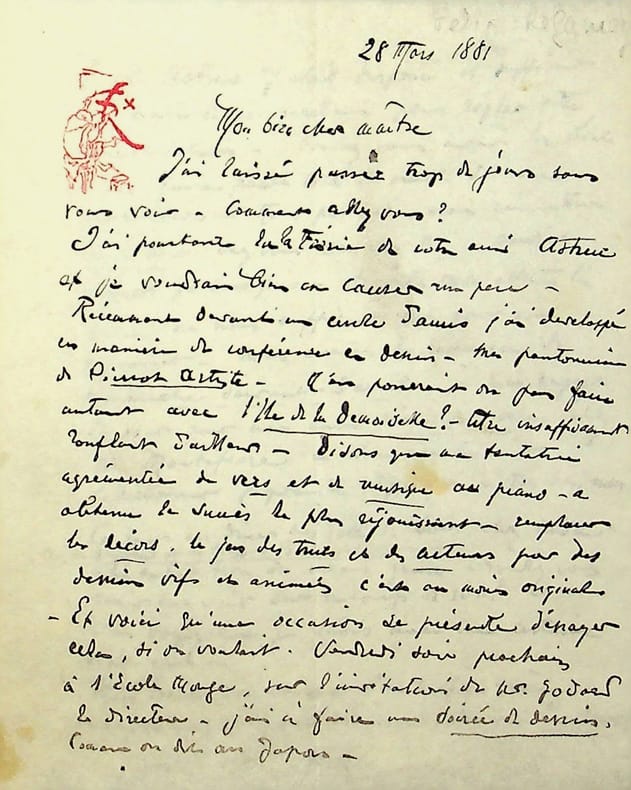 28 Mars 1881
Mon bien cher maître
J'ai laissé passer trop de jours sans
vous voir – Comment allez vous ?
J'ai pourtant lu la Féerie de votre ami Astruc
et je voudrais bien en causer un peu –
Récemment devant un cercle d'amis j'ai développé
en manière de conférence en dessin – ma pantomime
de Pierrot Artiste – N'en pourrait on pas faire
autant avec l'Ile de la Demoiselle ? – titre insuffisamment
ronflant d'ailleurs – Disons que ma tentative
agrémentée de vers et de musique au piano – a
obtenu le succès le plus réjouissant – remplacer
les décors, le jeu des trucs et des acteurs par des
dessins vifs et animés c'est au moins original
– Et voici qu'une occasion se présente d'essayer
cela, si on voulait. Vendredi soir prochain
à l'Ecole Monge, sur l'invitation de Mr. Godard
le directeur – j'ai à faire une soirée de dessins.
Comme on dit au Japon –